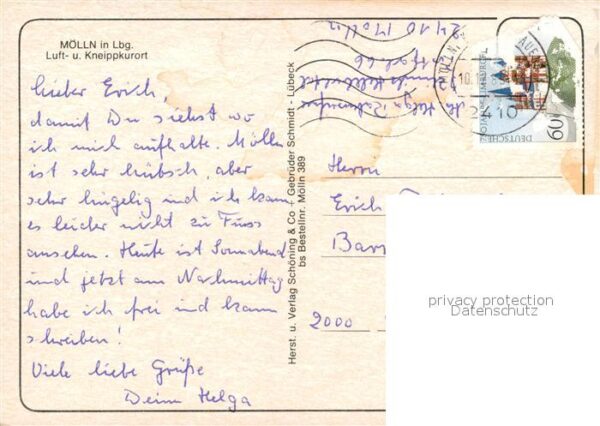 MÖLLN in Lbg.
Luft- u. Kneippkurort
Lieber Erich,
damit Du siehst wo
ich mich aufhalte. Mölln
ist sehr hübsch, aber
sehr hügelig und ich kann
es leider nicht zu Fuss
ansehen. Heute ist Sonnabend
und jetzt am Nachmittag
habe ich frei und kann
schreiben!
Viele liebe Grüße
Deine Helga
Herst. u. Verlag Schöning & Co + Gebrüder Schmidt - Lübeck
bs Bestellnr. Mölln 389
Helga
2410 Mölln
MÖLLN,
2410
60
DEUTSCHE
Herrn
Erich
Bar
2000
privacy protection
Datenschutz